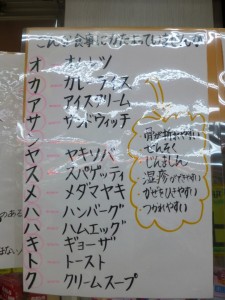 こんな食事にかたよっていませんか?
オ オムレツ
カ カレーライス
ア アイスクリーム
サ サンドウィッチ
ン
ヤ ヤキソバ
ス スパゲッティ
メ メダマヤキ
ハ ハンバーグ
ハ ハムエッグ
キ ギョーザ
ト トースト
ク クリームスープ
骨が折れやすい
・ぜんそく
・じんましん
・湿疹ができやすい
・かぜをひきやすい
・つかれやすい
のある